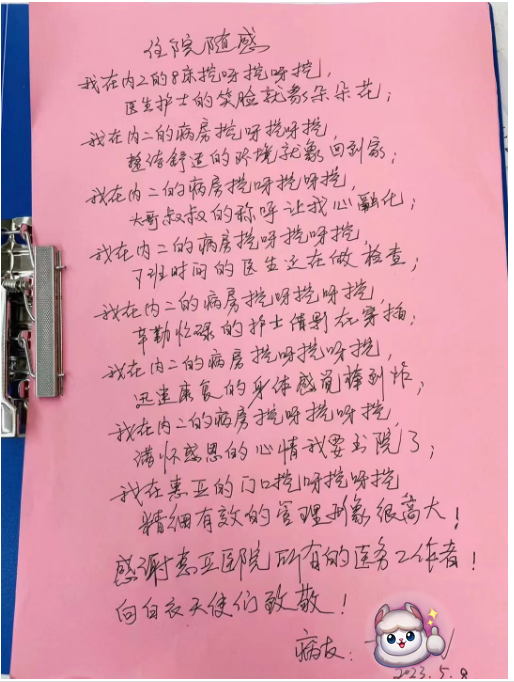 住院随感
我在内二的8床挖呀挖呀挖,
医生护士的笑脸就象朵朵花;
我在内二的病房挖呀挖呀挖,
整洁舒适的环境就象回到家;
我在内二的病房挖呀挖呀挖,
大哥叔叔的称呼让我心融化;
我在内二的病房挖呀挖呀挖,
下班时间的医生还在做检查;
我在内二的病房挖呀挖呀挖,
辛勤忙碌的护士倩影在穿插;
我在内二的病房挖呀挖呀挖,
迅速康复的身体感觉棒到炸;
我在内二的病房挖呀挖呀挖,
满怀感恩的心情我要出院了;
我在惠亚的门口挖呀挖呀挖
精细有效的管理形象很高大!
感谢惠亚医院所有的医务工作者!
向白衣天使们致敬!
病友:
2023.5.8